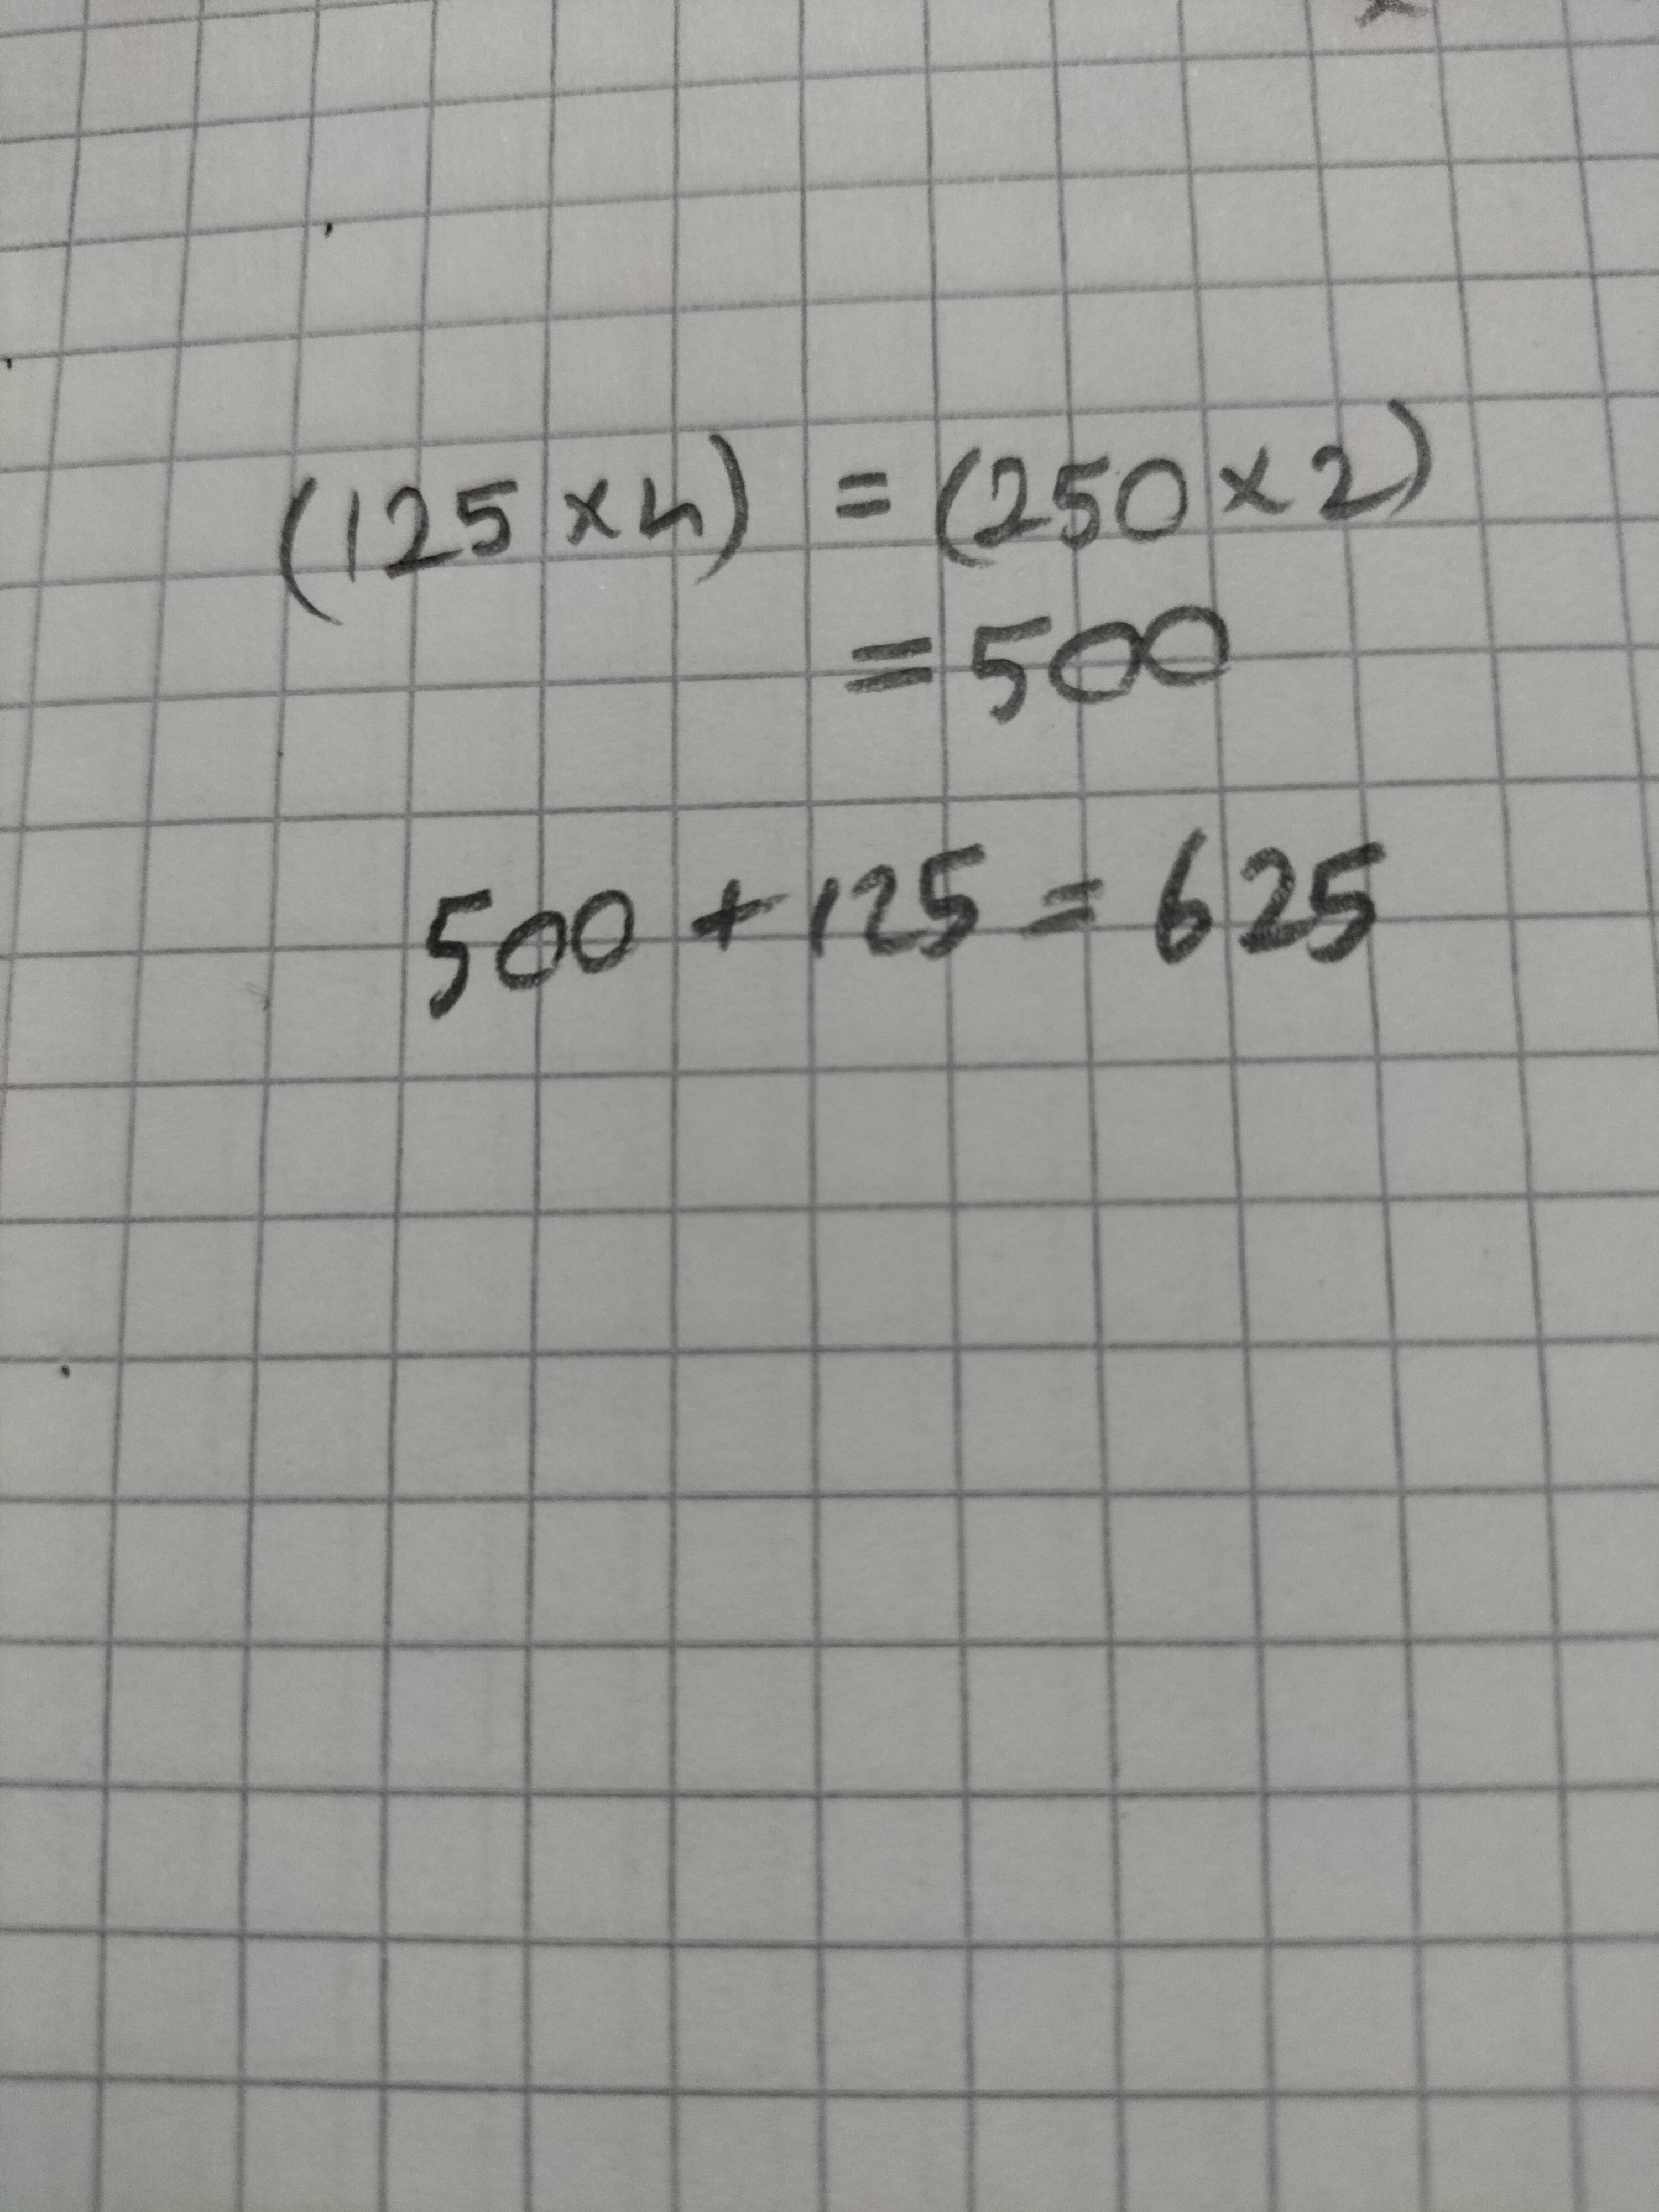 (125 × 4) = (250 × 2)
= 500
500 + 125 = 625